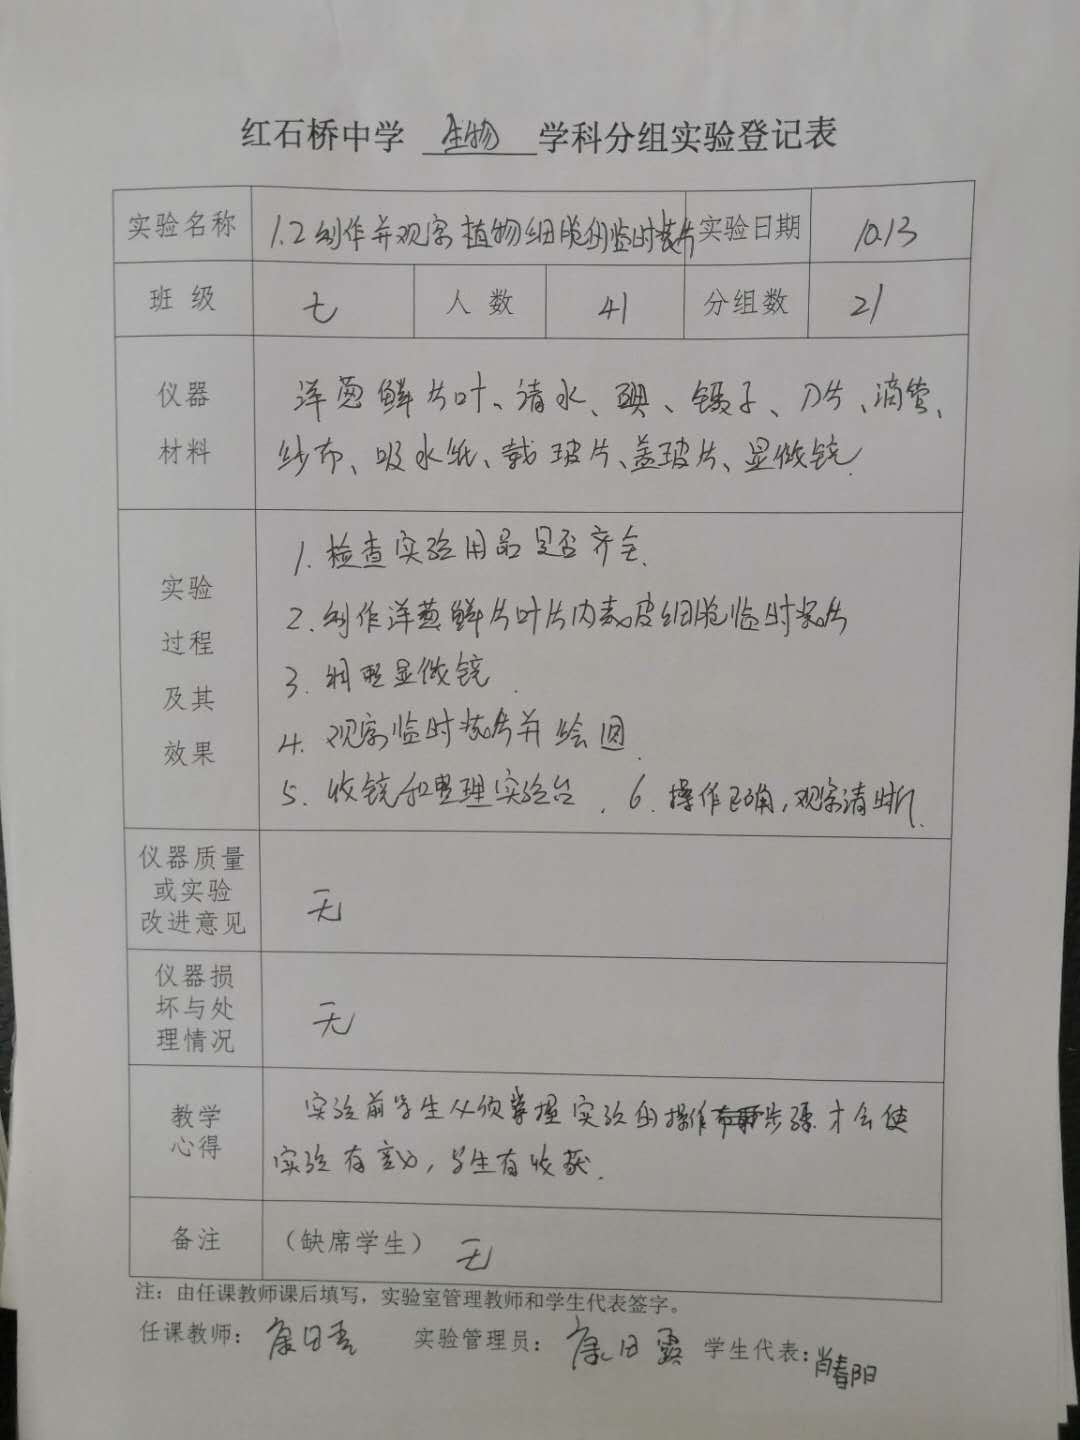 红石桥中学 生物 学科分组实验登记表
实验名称 1.2制作并观察植物细胞的临时装片 实验日期 10.13
班级 七 人数 41 分组数 21
仪器材料 洋葱鲜片叶、清水、碘、镊子、刀片、滴管、
纱布、吸水纸、载玻片、盖玻片、显微镜.
实验过程及其效果 1.检查实验用品是否齐全.
2.制作洋葱鲜片叶片内表皮细胞临时装片
3.调整显微镜.
4.观察临时装片并绘图.
5.收镜和整理实验台. 6.操作正确,观察清晰.
仪器质量
或实验
改进意见 无
仪器损
坏与处
理情况 无
教学心得 实验前学生必须掌握实验的操作步骤才会使
实验有效,学生有收获.
备注 (缺席学生) 无
注:由任课教师课后填写,实验室管理教师和学生代表签字。
任课教师: 康日 实验管理员: 康日霞 学生代表: 肖春阳